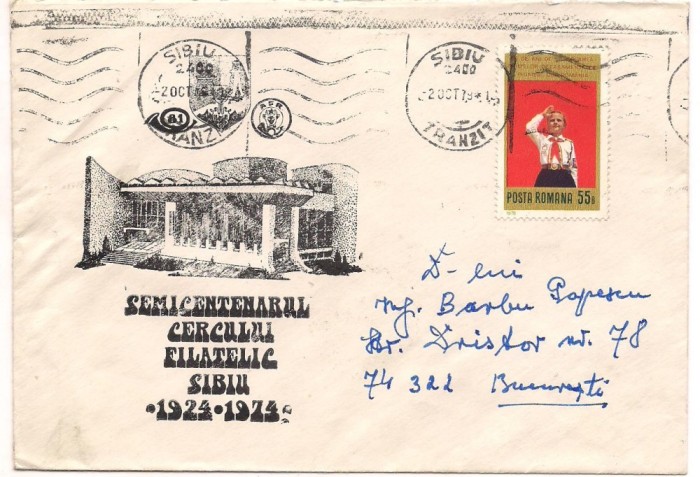 SIBIU
2400
-2 OCT 79
TRANZIT
SIBIU
2400
-2 OCT 79
TRANZIT
POSTA ROMANA 55B
SEMICENTENARUL
CERCULUI
FILATELIC
SIBIU
•1924•1974
D-lui
ing. Barbu Popescu
Str. Dristor nr. 78
74 322 București